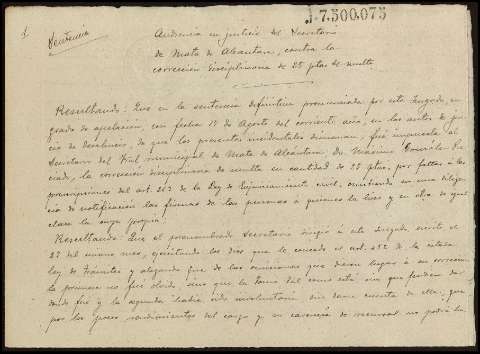 1
J.7.500.075
Sentencia
Audiencia en justicia del Secretario
de Mata de Alcántara, contra la
corrección disciplinaria de 25 ptas de multa
Resultando: Que en la sentencia definitiva pronunciada por este Juzgado, en
grado de apelación, con fecha 12 de Agosto del corriente año, en los autos de jui-
cio de desahucio, de que los presentes incidentales dimanan, fué impuesta al
Secretario del Tral municipal de Mata de Alcántara, Dn Máximo
la corrección disciplinaria de multa en cantidad de 25 ptas, por faltar á las
prescripciones del art. 263 de la Ley de Enjuiciamiento civil, omitiendo en una diligen-
cia de notificación las firmas de las personas á quienes la hizo y en otra de igual
clase la suya propia.
Resultando: Que el prenombrado Secretario dirigió á este Juzgado escrito, el
27 del mismo mes, ejercitando los dias que le concede el art. 452 de la citada
ley de trámites y alegando que de las omisiones que dieron lugar á su corrección
la primera no fué olvido, sino que la tomó tal como está sin que pudiera dar-
de fué y la segunda había sido involuntaria sin darse cuenta de ella; que
por los pocos rendimientos del cargo y su carencia de recursos no podía